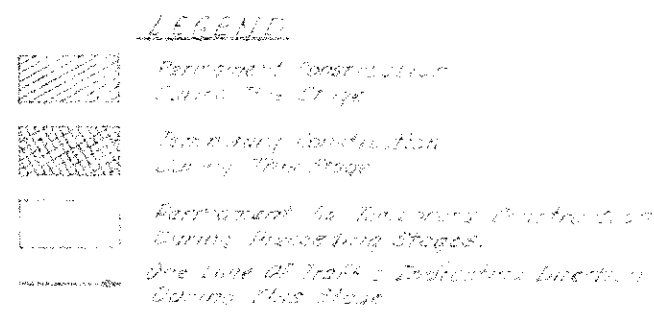 LEGEND
Permanent Construction
During This Stage
Temporary Construction
During This Stage
Permanent Temporary Construction
During Preceding Stages.
One Lane Of Traffic Indicating Direction
During This Stage